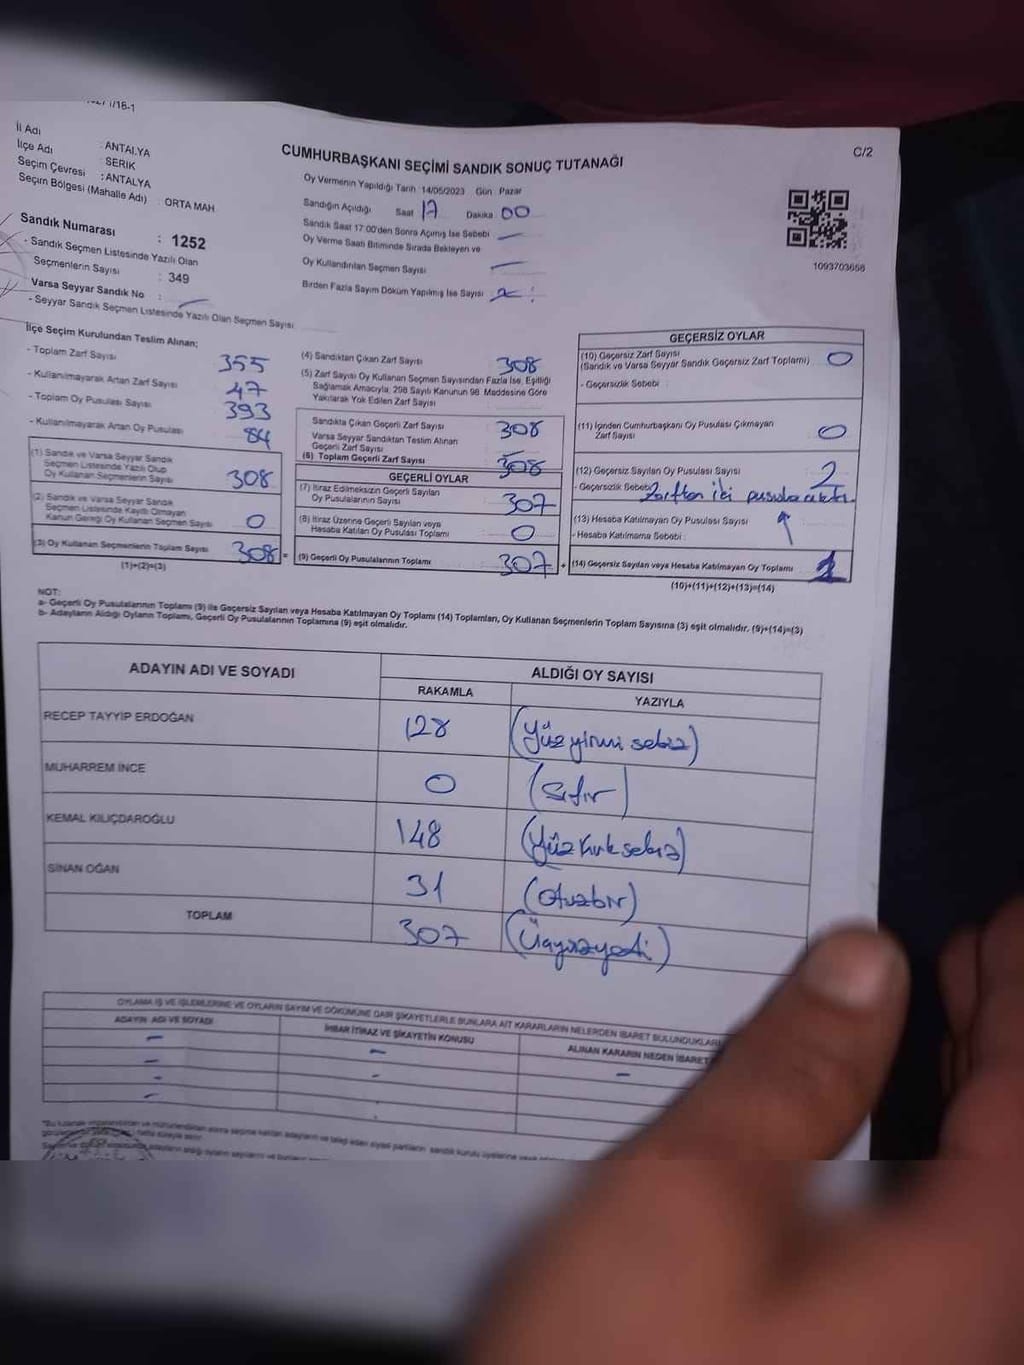 1
İl Adı : ANTALYA
İlçe Adı : SERİK
Seçim Çevresi : ANTALYA
Seçim Bölgesi (Mahalle Adı) : ORTA MAH
Sandık Numarası : 1252
- Sandık Seçmen Listesinde Yazılı Olan
Seçmenlerin Sayısı : 349
Varsa Seyyar Sandık No :
- Seyyar Sandık Seçmen Listesinde Yazılı Olan Seçmen Sayısı
CUMHURBAŞKANI SEÇİMİ SANDIK SONUÇ TUTANAĞI
C/2
Oy Vermenin Yapıldığı Tarih 14/05/2023 Gün Pazar
Sandığın Açıldığı Saat 17 Dakika 00
Sandık Saat 17:00'den Sonra Açılmış İse Sebebi
Oy Verme Saati Bitiminde Sırada Bekleyen ve
Oy Kullandırılan Seçmen Sayısı
Birden Fazla Sayım Döküm Yapılmış İse Sayısı
1093703656
İlçe Seçim Kurulundan Teslim Alınan;
- Toplam Zarf Sayısı 355
- Kullanılmayarak Artan Zarf Sayısı 47
- Toplam Oy Pusulası Sayısı 393
- Kullanılmayarak Artan Oy Pusulası 84
(1) Sandık ve Varsa Seyyar Sandık
Seçmen Listesinde Yazılı Olup
Oy Kullanan Seçmenlerin Sayısı 308
(2) Sandık ve Varsa Seyyar Sandık
Seçmen Listesinde Kayıtlı Olmayan
Kanun Gereği Oy Kullanan Seçmen Sayısı 0
(3) Oy Kullanan Seçmenlerin Toplam Sayısı 308 =
(1)+(2)=(3)
(4) Sandıktan Çıkan Zarf Sayısı 308
(5) Zarf Sayısı Oy Kullanan Seçmen Sayısından Fazla İse, Eşitliği
Sağlamak Amacıyla, 298 Sayılı Kanunun 98. Maddesine Göre
Yakılarak Yok Edilen Zarf Sayısı
Sandıkta Çıkan Geçerli Zarf Sayısı 308
Varsa Seyyar Sandıktan Teslim Alınan
Geçerli Zarf Sayısı
(6) Toplam Geçerli Zarf Sayısı 308
GEÇERLİ OYLAR
(7) İtiraz Edilmeksizin Geçerli Sayılan
Oy Pusulalarının Sayısı 307
(8) İtiraz Üzerine Geçerli Sayılan veya
Hesaba Katılan Oy Pusulası Toplamı 0
(9) Geçerli Oy Pusulalarının Toplamı 307 +
GEÇERSİZ OYLAR
(10) Geçersiz Zarf Sayısı 0
(Sandık ve Varsa Seyyar Sandık Geçersiz Zarf Toplamı)
- Geçersizlik Sebebi :
(11) İçinden Cumhurbaşkanı Oy Pusulası Çıkmayan
Zarf Sayısı 0
(12) Geçersiz Sayılan Oy Pusulası Sayısı 2
- Geçersizlik Sebebi Zarftan iki pusula çıktı.
(13) Hesaba Katılmayan Oy Pusulası Sayısı
- Hesaba Katılmama Sebebi :
(14) Geçersiz Sayılan veya Hesaba Katılmayan Oy Toplamı 1
(10)+(11)+(12)+(13)=(14)
NOT:
a- Geçerli Oy Pusulalarının Toplamı (9) ile Geçersiz Sayılan veya Hesaba Katılmayan Oy Toplamı (14) Toplamları, Oy Kullanan Seçmenlerin Toplam Sayısına (3) eşit olmalıdır. (9)+(14)=(3)
b- Adayların Aldığı Oyların Toplamı, Geçerli Oy Pusulalarının Toplamına (9) eşit olmalıdır.
ADAYIN ADI VE SOYADI
ALDIĞI OY SAYISI
RAKAMLA YAZIYLA
RECEP TAYYİP ERDOĞAN 128 (Yüzyirmi sekiz)
MUHARREM İNCE 0 (Sıfır)
KEMAL KILIÇDAROĞLU 148 (Yüz kırk sekiz)
SİNAN OĞAN 31 (Otuzbir)
TOPLAM 307 (Üçyüzyedi)
OYLAMA İŞ VE İŞLEMLERİNE VE OYLARIN SAYIM VE DÖKÜMÜNE DAİR ŞİKAYETLERLE BUNLARA AİT KARARLARIN NELERDEN İBARET BULUNDUKLARI
ADAYIN ADI VE SOYADI
İHBAR İTİRAZ VE ŞİKAYETİN KONUSU
ALINAN KARARIN NEDEN İBARET